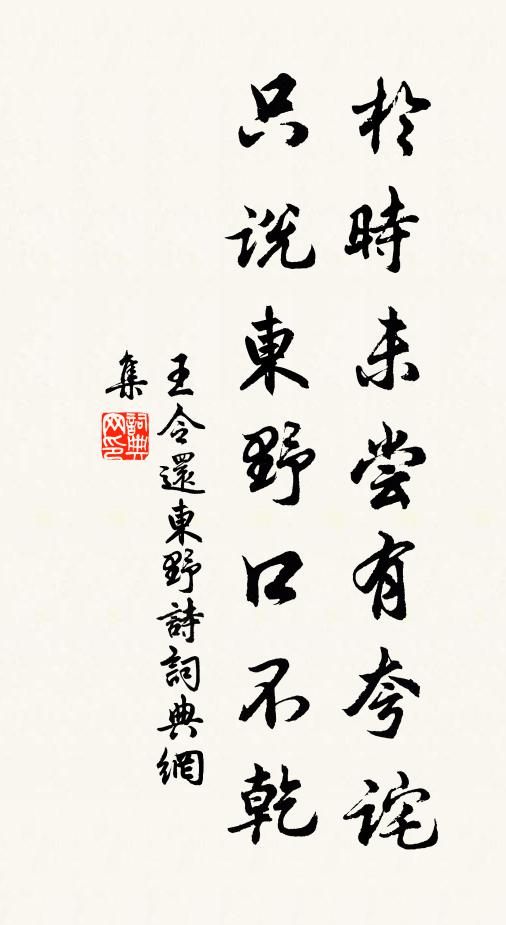 於時未尝有夸詫
只说東野口不乾
王令還東野詩詞典網
集
詞典網印